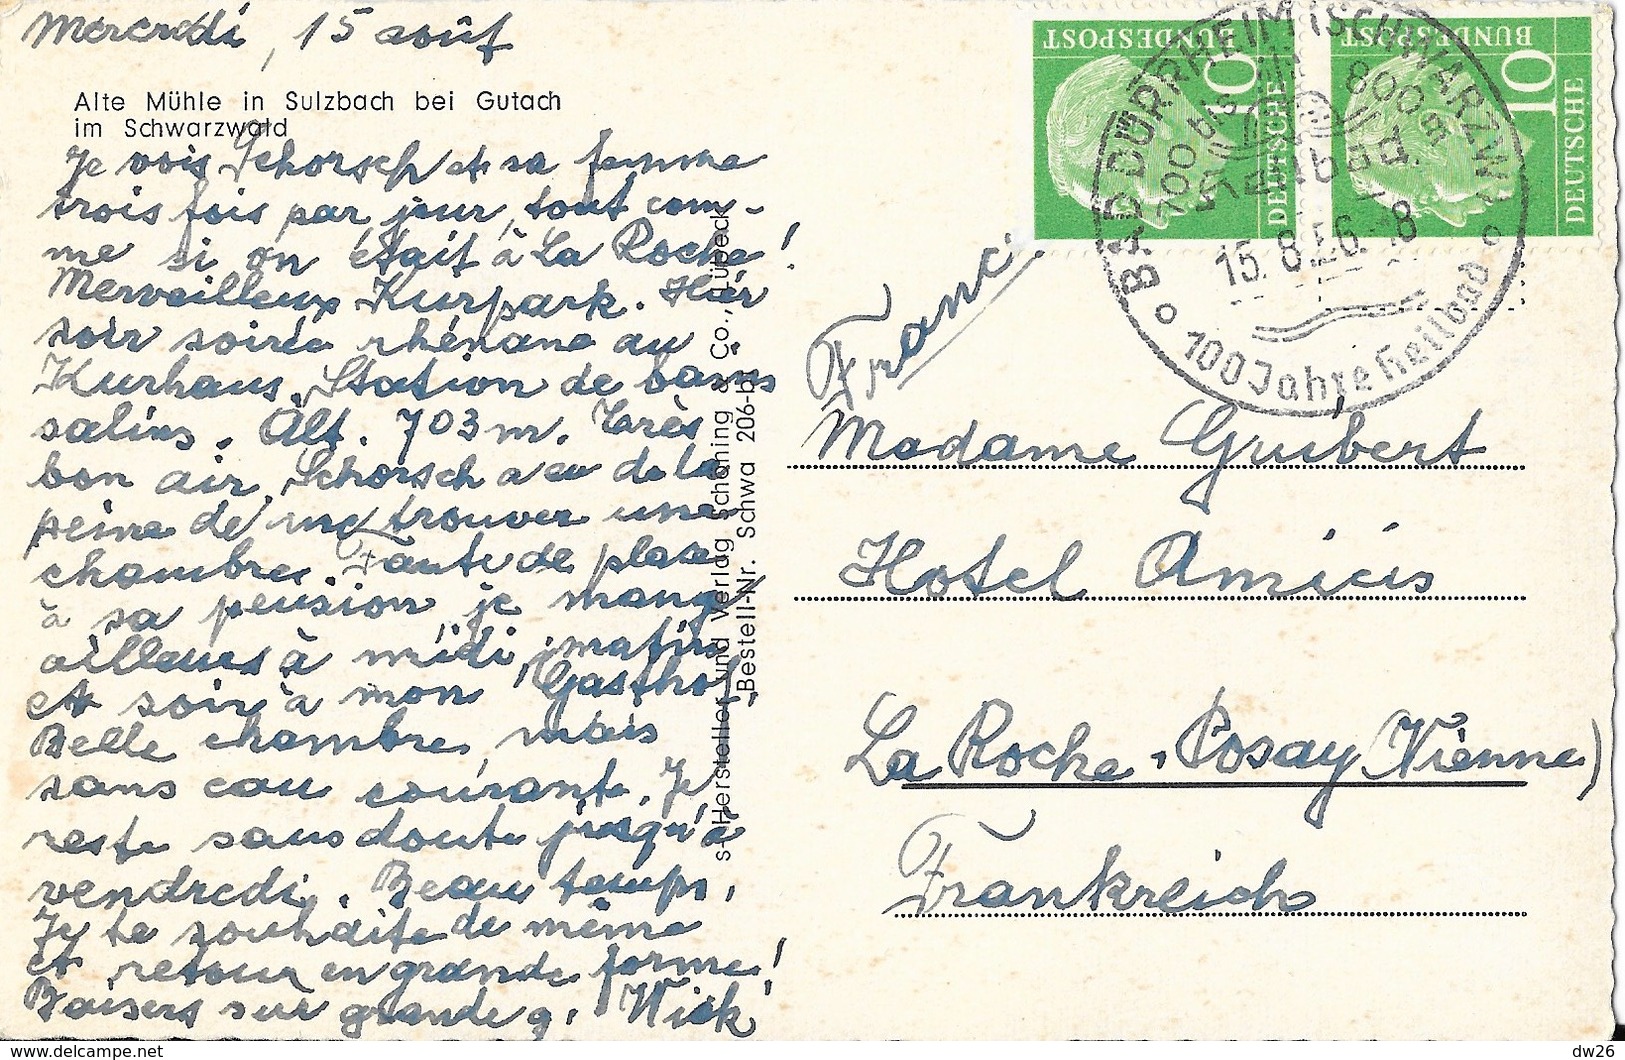 Mercredi, 15 août
Alte Mühle in Sulzbach bei Gutach
im Schwarzwald
Je vois Schorsch et sa femme
trois fois par jour, tout com-
me si on était à La Roche!
Merveilleux Kurpark. Hier
soir soirée rhénane au
Kurhaus. Station de bains
salins. Alt. 703 m. Très
bon air. Schorsch a eu de la
peine de me trouver une
chambre. Faute de place
à sa pension je mange
ailleurs à midi, matin
et soir à mon Gasthof.
Belle chambre, mais
sans eau courante. Je
reste sans doute jusqu'à
vendredi. Beau temps.
Je te souhaite de même
et retour en grande forme!
Baisers sur grande g. Nick
s-Hersteller und Verlag Schöning & Co., Lübeck
Bestell-Nr. Schwa 206-b
DEUTSCHE
BUNDESPOST
10
DEUTSCHE
BUNDESPOST
10
BAD DÜRRHEIM (SCHWARZW.)
700 bis 800 m
15.8.56.-8
100 Jahre Heilbad
France
Madame Guibert
Hotel Amicis
La Roche-Posay (Vienne)
Frankreich
dw26
delcampe.net